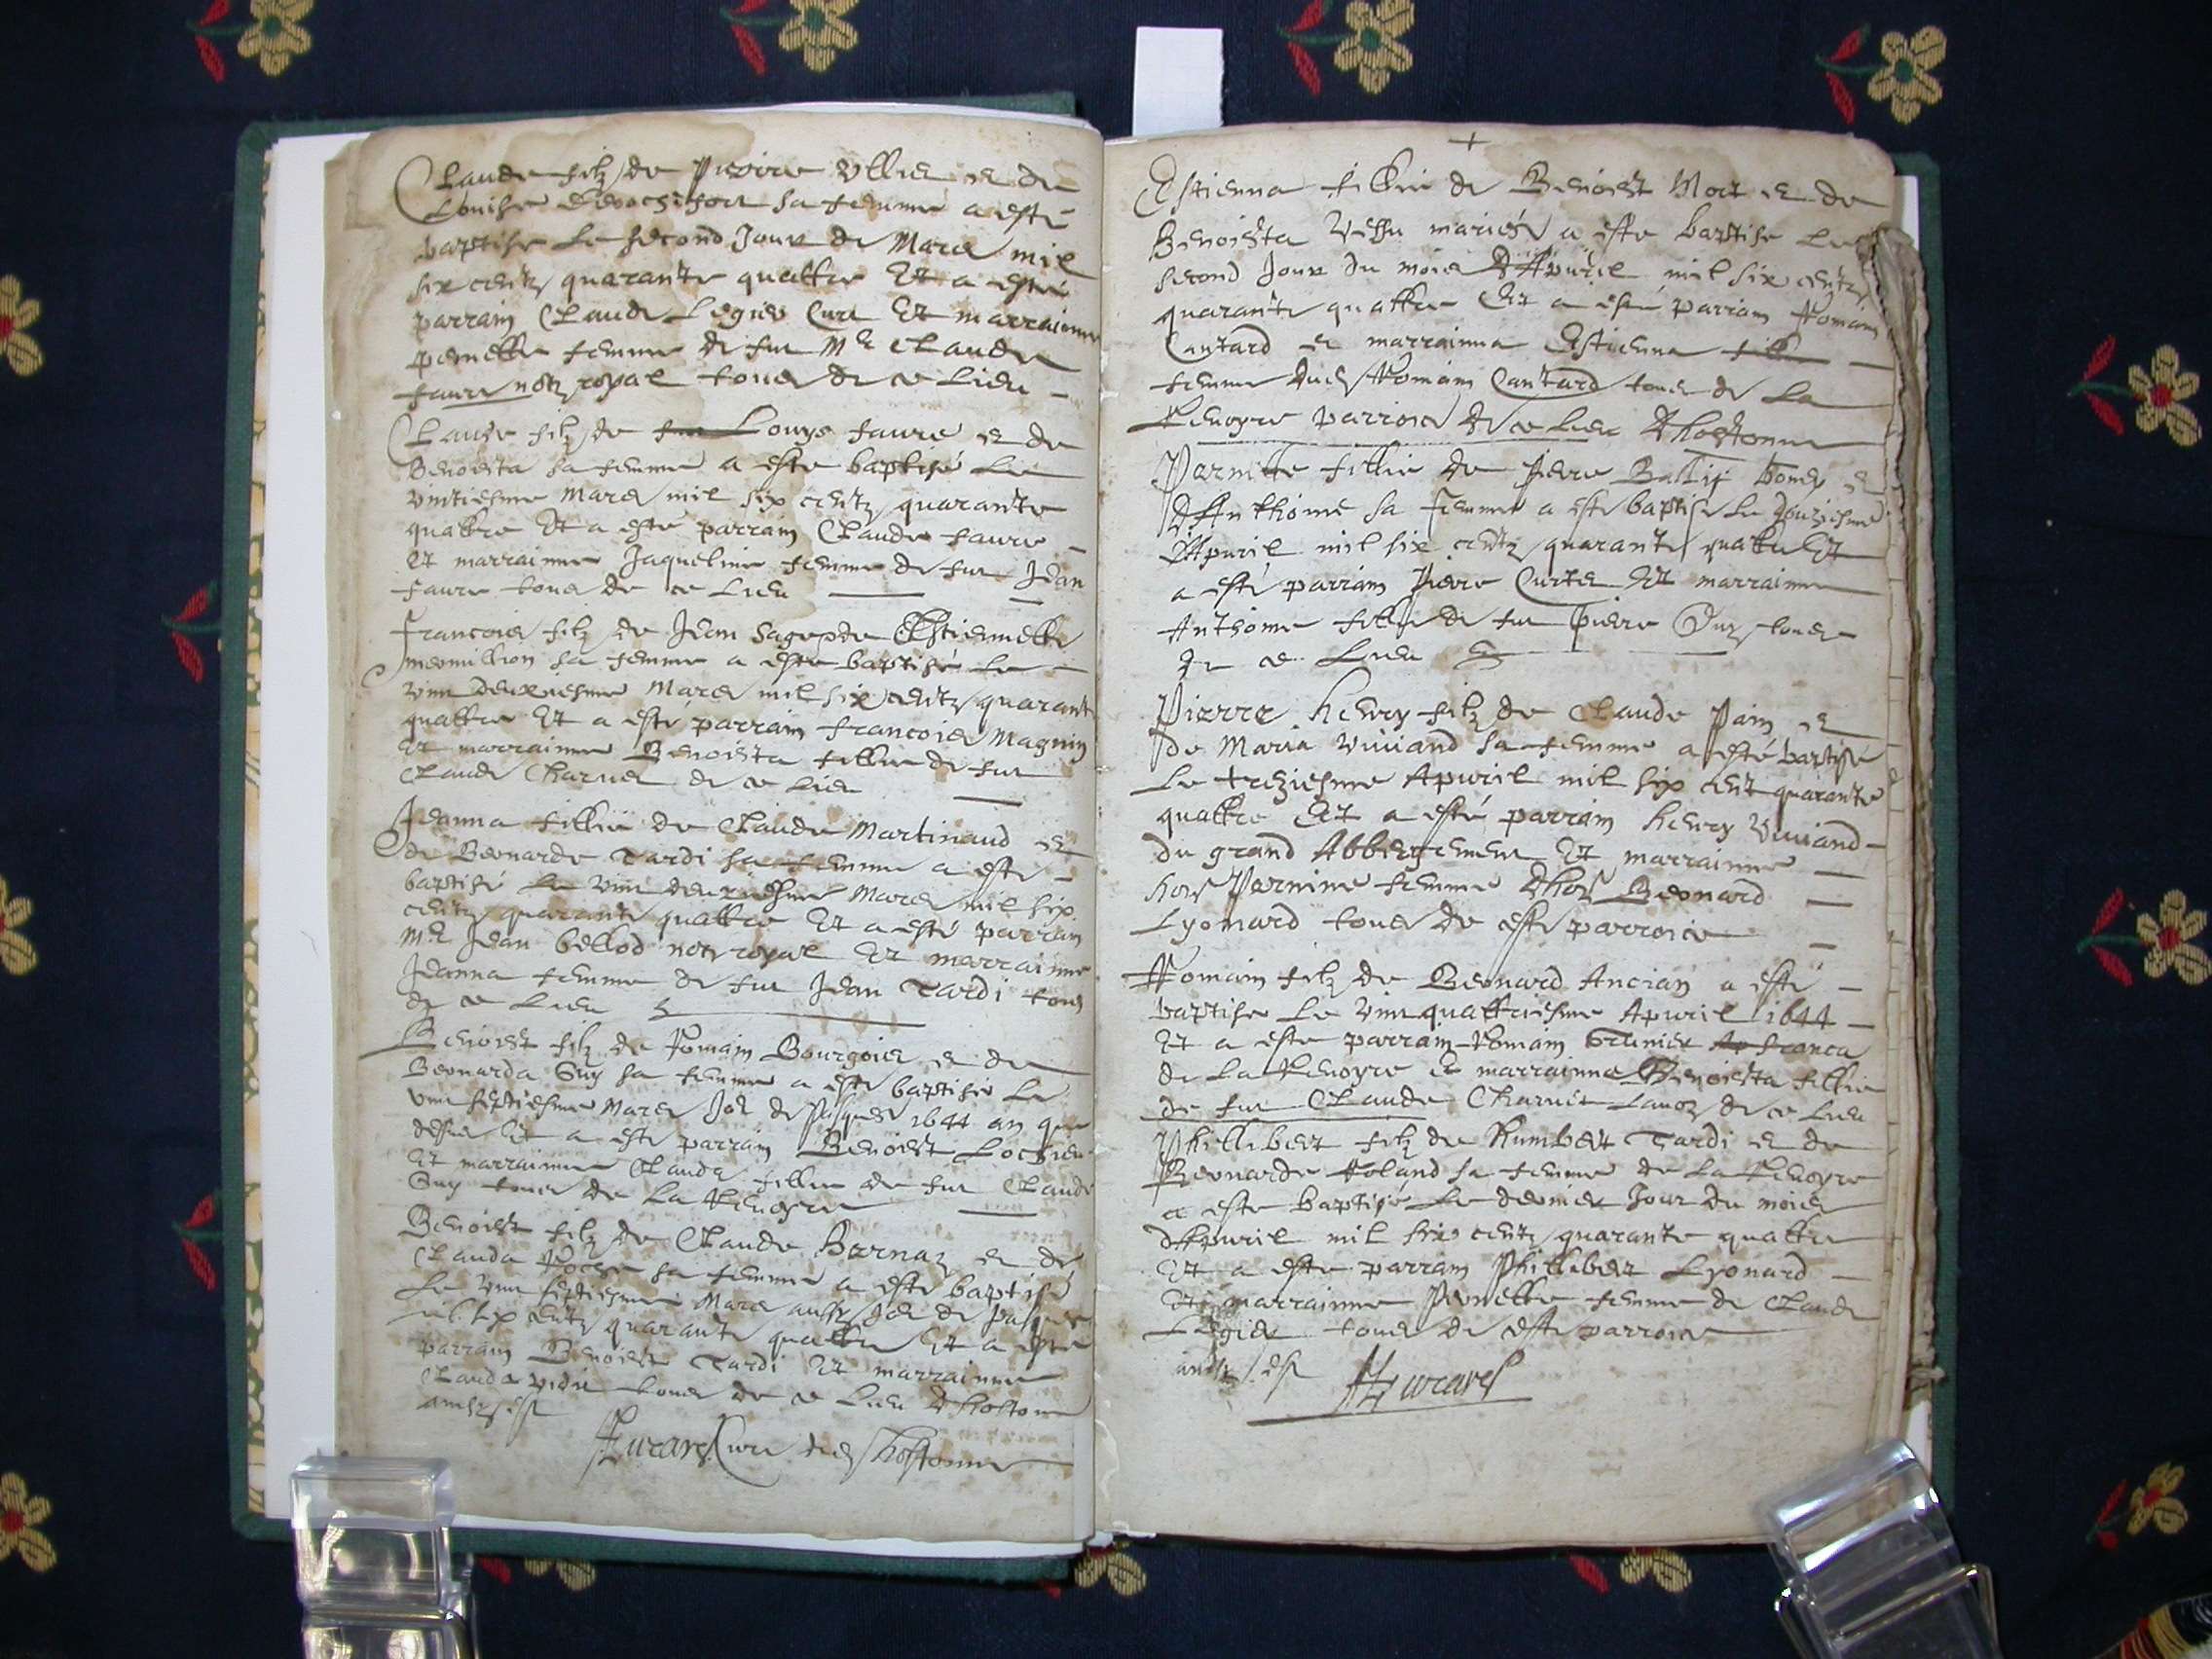 Claude filz de Pierre Ullie et de
Louise sa femme a esté
baptise le second Jour de Mars mil
six centz quarante quattre Et a esté
parrain Claude Legier Curt Et marrainne
pernette femme de fut Mr Claude
faure notz royal tous de ce lieu
Claude filz de Louys faure et de
Benoista sa femme a este baptisé le
vintiesme Mars mil six centz quarante
quattre Et a esté parrain Claude faure
Et marrainne Jaqueline femme de fut Jean
faure tous de ce lieu
francois filz de Jean sage de Estiennette
mermillion sa femme a este baptisé le
vint deuxiesme Mars mil six centz quarante
quattre Et a esté parrain francois Magnin
Et marrainne Benoista fillie de fut
Claude Charnet de ce lieu
Jeanna fillie de Claude Martinaud et
de Bernarde Tardi sa femme a este
baptisé le vint deuxiesme Mars mil six
centz quarante quattre Et a esté parrain
Mr Jean bellod notz royal Et marrainne
Jeanna femme de fut Jean Tardi tous
de ce lieu
Benoist filz de Romain Bourgois et de
Bernarda Guy sa femme a este baptisé le
vint septiesme Mars Jor de Pasques 1644 an que
dessus Et a este parrain Benoist
Et marrainne Clauda fillie de fut Claude
Guy tous de la Revoyre
Benoist filz de Claude Bernaz et de
Clauda Roche sa femme a esté baptisé
le vint septiesme Mars aussy Jor de pasques
mil six centz quarante quattre Et a esté
parrain Benoist Tardi Et marrainne
Clauda tous de ce lieu dhostonne
ainsy est
Curé dud hostonne
Estienna fillie de Benoist Mort et de
Benoista mariés a este baptise le
second Jour du mois dApuril mil six centz
quarante quattre Et a esté parrain Romain
Cantard et marrainna Estienna
femme dud Romain Cantard tous de la
Revoyre parroisse de ce lieu dhostonne
Pernette fillie de Pierre Ballif et
dAnthoine sa femme a este baptise le douziesme
dApuril mil six centz quarante quattre Et
a esté parrain Pierre Curtet Et marrainne
Anthoine fillie de fut Pierre Guy tous
de ce lieu
Pierre henry filz de Claude Pain et
de Maria Viviand sa femme a esté baptisé
le treziesme Apuril mil six cent quarante
quattre Et a esté parrain henry Viviand
du grand Abbergement Et marrainne
honn Pernine femme dhonn Bernard
Lyonard tous de ceste parroice
Romain filz de Bernard Ancian a esté
baptise le vint quattriesme Apuril 1644
Et a este parrain Romain Grunier franca
de la Revoyre et marrainna Benoista fillie
de fut Claude Charnet de ce lieu
Phillibert filz de Humbert Tardi et de
Bernarde Roland sa femme de la Revoyre
a este baptisé le dernier Jour du mois
dApuril mil six centz quarante quattre
Et a este parrain Phillibert Lyonard
Et marrainne Pernette femme de Claude
Legier tous de ceste parroisse
ainsy est